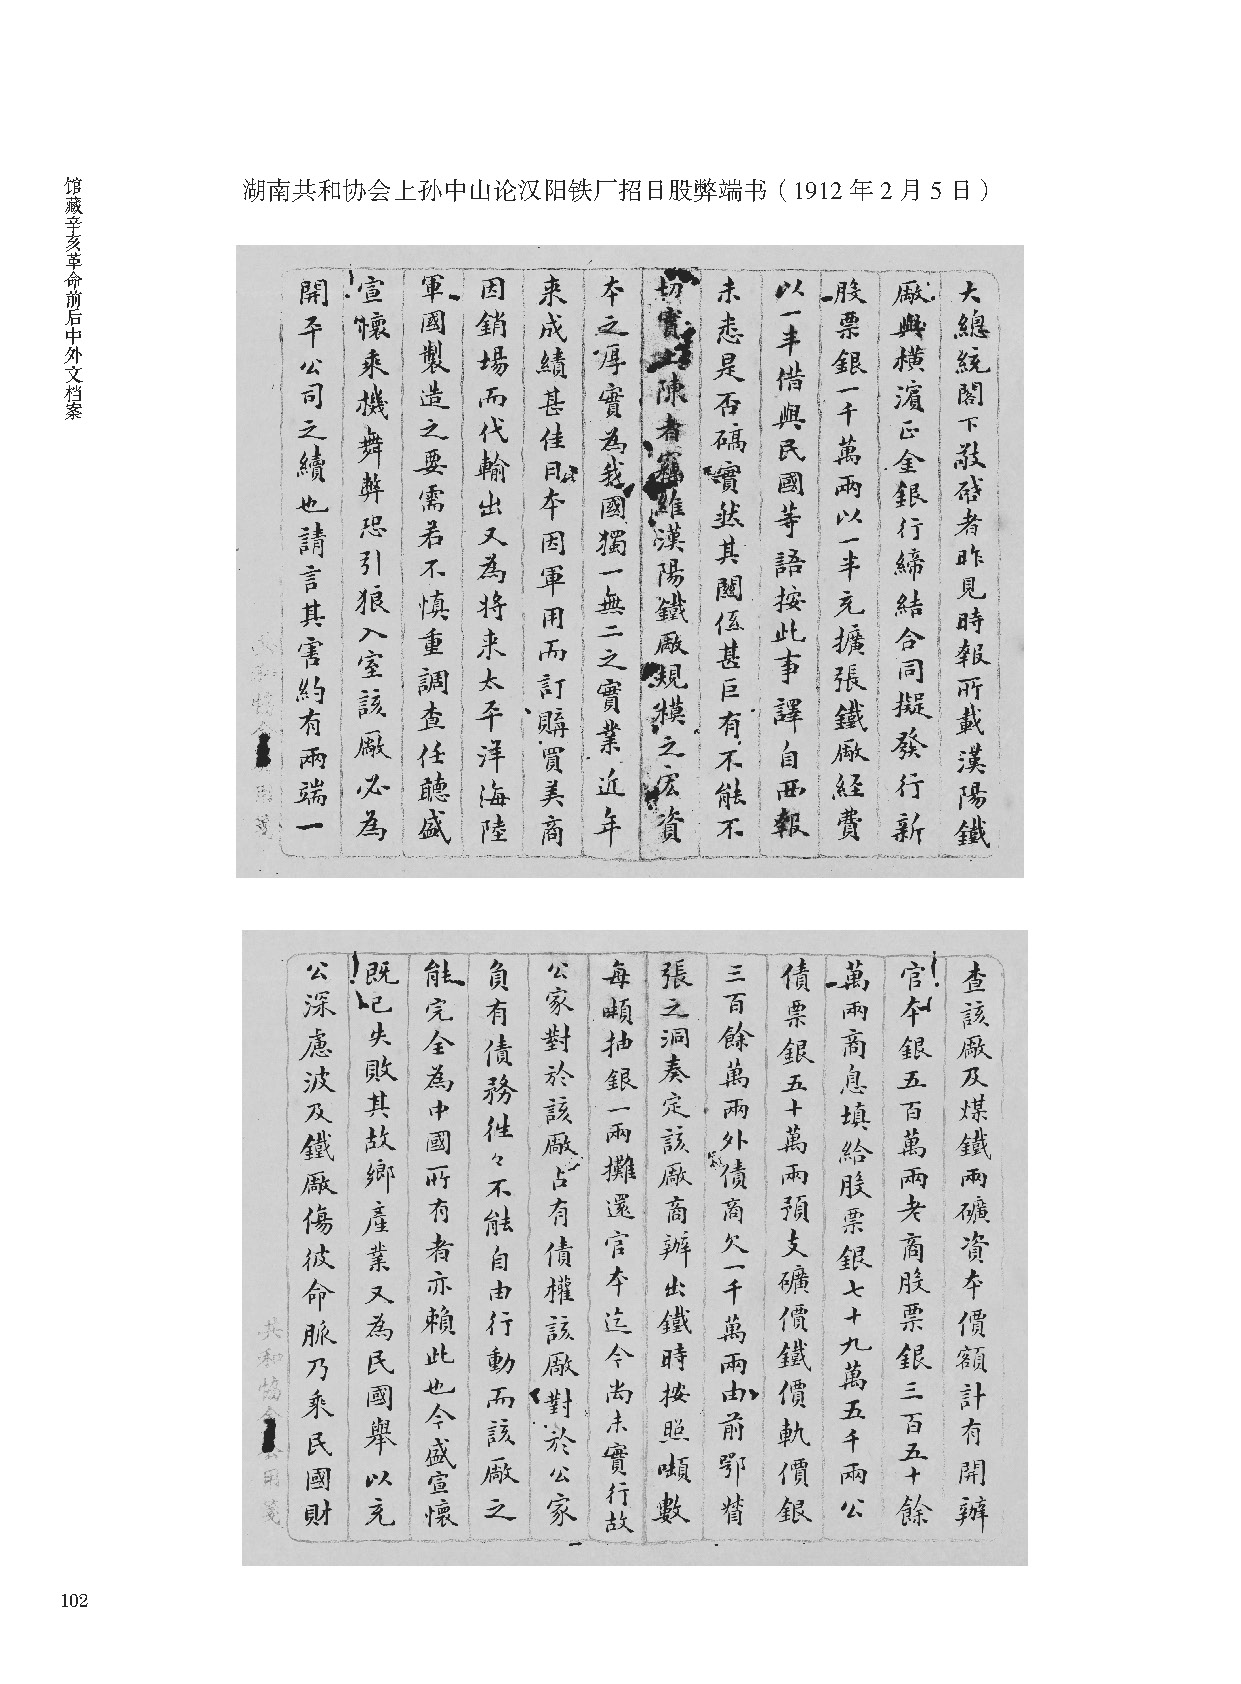 馆藏辛亥革命前后中外文档案
湖南共和协会上孙中山论汉阳铁厂招日股弊端书（1912 年 2 月 5 日）
大總統閣下敬啓者昨見時報所載漢陽鐵
廠與橫濱正金銀行締結合同擬發行新
股票銀一千萬兩以一半充擴張鐵廠經費
以一半借與民國等語按此事譯自西報
未悉是否確實然其關係甚巨有不能不
切實上陳者竊維漢陽鐵廠規模之宏資
本之厚實為我國獨一無二之實業近年
來成績甚佳日本因軍用而訂購買美商
因銷場而代輸出又為將來太平洋海陸
軍國製造之要需若不慎重調查任聽盛
宣懷乘機舞弊恐引狼入室該廠必為
開平公司之續也請言其害約有兩端一
查該廠及煤鐵兩礦資本價額計有開辦
官本銀五百萬兩老商股票銀三百五十餘
萬兩商息填給股票銀七十九萬五千兩公
債票銀五十萬兩預支礦價鐵價軌價銀
三百餘萬兩外債商欠一千萬兩由前鄂督
張之洞奏定該廠商辦出鐵時按照噸數
每噸抽銀一兩攤還官本迄今尚未實行故
公家對於該廠占有債權該廠對於公家
負有債務徃々不能自由行動而該廠之
能完全為中國所有者亦賴此也今盛宣懷
既已失敗其故鄉產業又為民國舉以充
公深慮波及鐵廠傷彼命脈乃乘民國財
共和協會公用箋
102